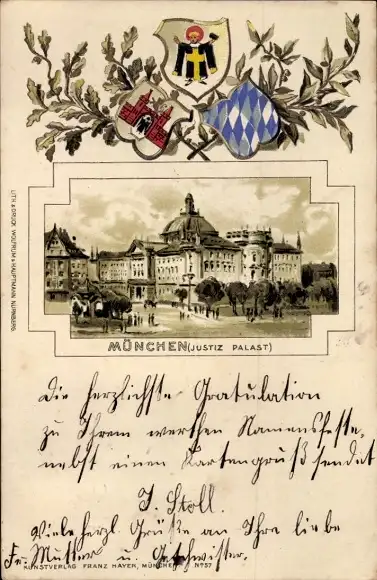 MÜNCHEN (JUSTIZ PALAST)
LITH. & DRUCK WOLFRUM & HAUPTMANN NÜRNBERG.
Die herzlichste Gratulation
zu Ihrem werthen Namensfeste,
nebst einen Kartengruß sendet
J. Stoll.
Viele herzl. Grüße an Ihre liebe
Fr. Mutter u. Geschwister.
KUNSTVERLAG FRANZ HAYER, MÜNCHEN No 57